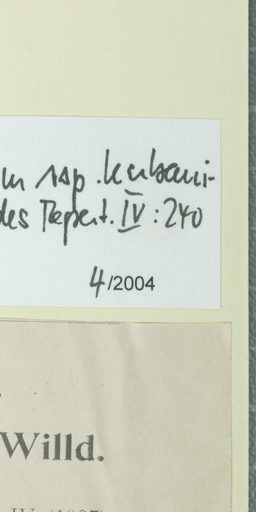 m ssp. kubani-
des Repert. IV : 240
4/2004
Willd.